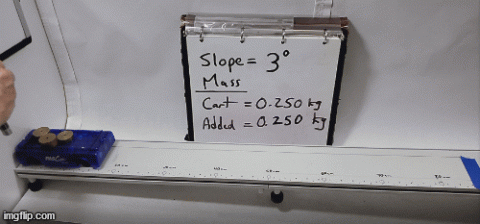 Slope = 3°
Mass
Cart = 0.250 kg
Added = 0.250 kg
imgflip.com